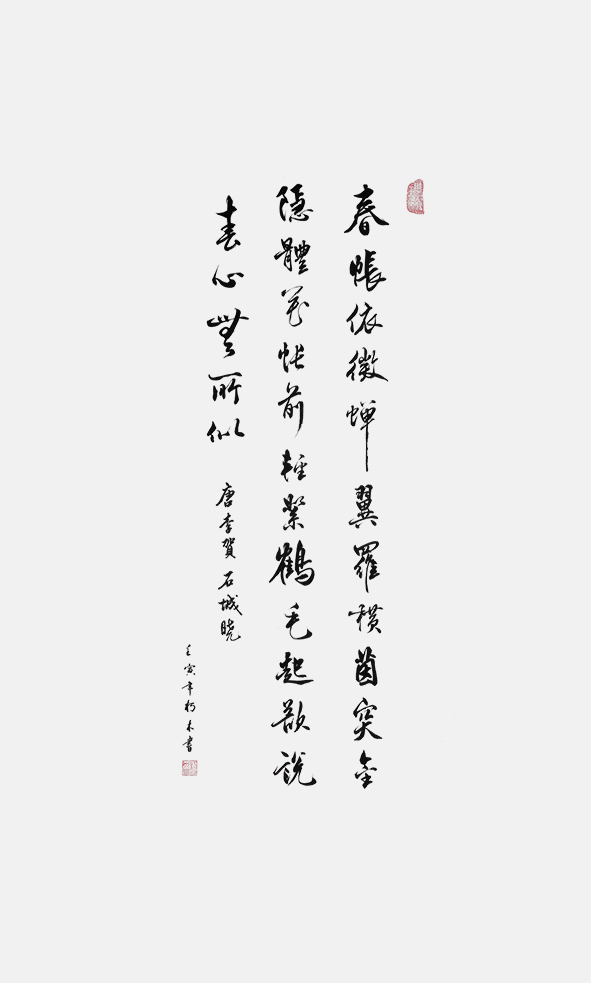 春帳依微蝉翼羅横茵突金
隱體花帐前輕絮鶴毛起欲説
春心無所似 唐李賀 石城晓
壬寅年朽木書